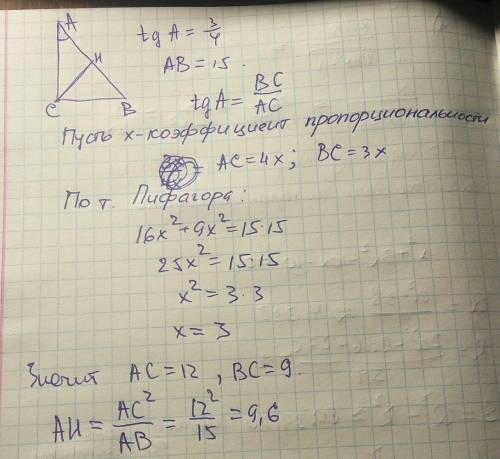 A
H
C
B
tg A = 3/4
AB = 15.
tg A = BC/AC
Пусть x-коэффициент пропорциональности
AC = 4x; BC = 3x
По т. Пифагора:
16x² + 9x² = 15·15
25x² = 15·15
x² = 3·3
x = 3
Значит AC = 12, BC = 9.
AH = AC²/AB = 12²/15 = 9,6